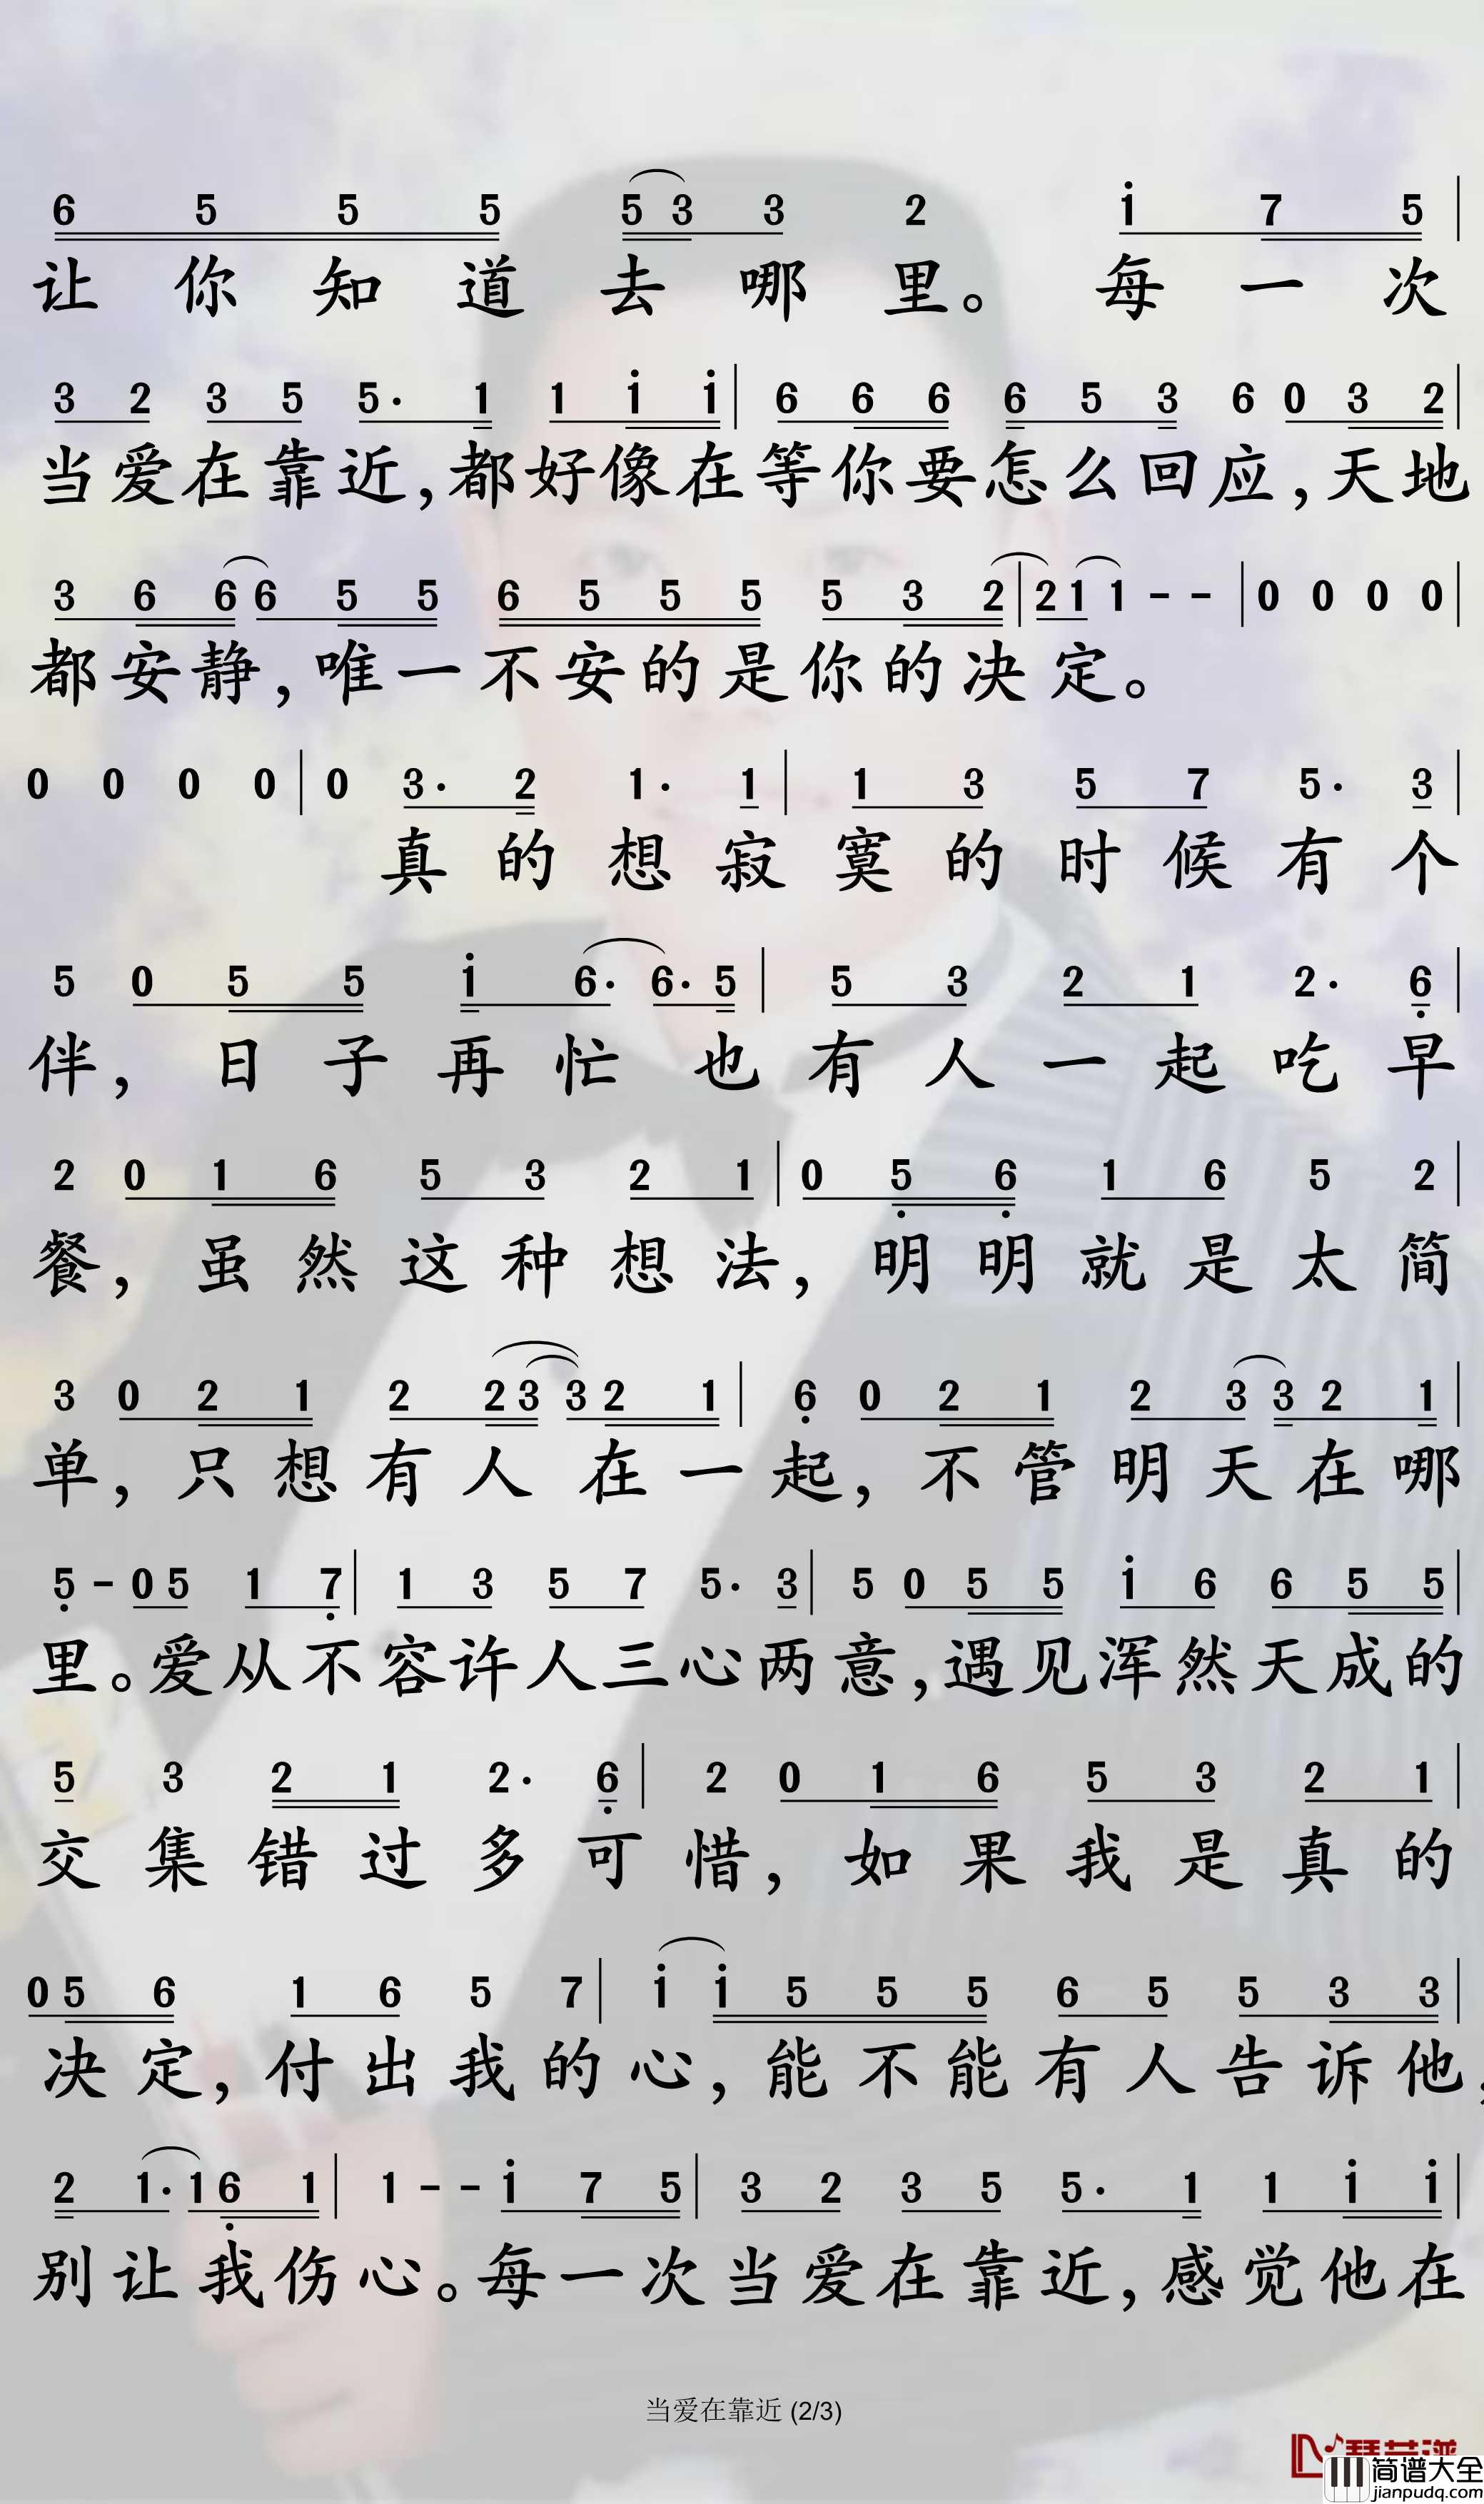 6 5 5 5 5 3 3 2 i 7 5 |
让你知道去哪里。每一次
3 2 3 5 5· 1 1 i i | 6 6 6 6 5 3 6 0 3 2 |
当爱在靠近,都好像在等你要怎么回应,天地
3 6 6 6 5 5 6 5 5 5 5 3 2 | 2 1 1 - - | 0 0 0 0 |
都安静,唯一不安的是你的决定。
0 0 0 0 | 0 3· 2 1· 1 | 1 3 5 7 5· 3 |
真的想寂寞的时候有个
5 0 5 5 i 6· 6· 5 | 5 3 2 1 2· 6 |
伴,日子再忙也有人一起吃早
2 0 1 6 5 3 2 1 | 0 5 6 1 6 5 2 |
餐,虽然这种想法,明明就是太简
3 0 2 1 2 2 3 3 2 1 | 6 0 2 1 2 3 3 2 1 |
单,只想有人在一起,不管明天在哪
5 - 0 5 1 7 | 1 3 5 7 5· 3 | 5 0 5 5 i 6 6 5 5 |
里。爱从不容许人三心两意,遇见浑然天成的
5 3 2 1 2· 6 | 2 0 1 6 5 3 2 1 |
交集错过多可惜,如果我是真的
0 5 6 1 6 5 7 | i i 5 5 5 6 5 5 3 3 |
决定,付出我的心,能不能有人告诉他,
2 1· 1 6 1 | 1 - - i 7 5 | 3 2 3 5 5· 1 1 i i |
别让我伤心。每一次当爱在靠近,感觉他在
当爱在靠近 (2/3)
简谱大全
jianpudq.com